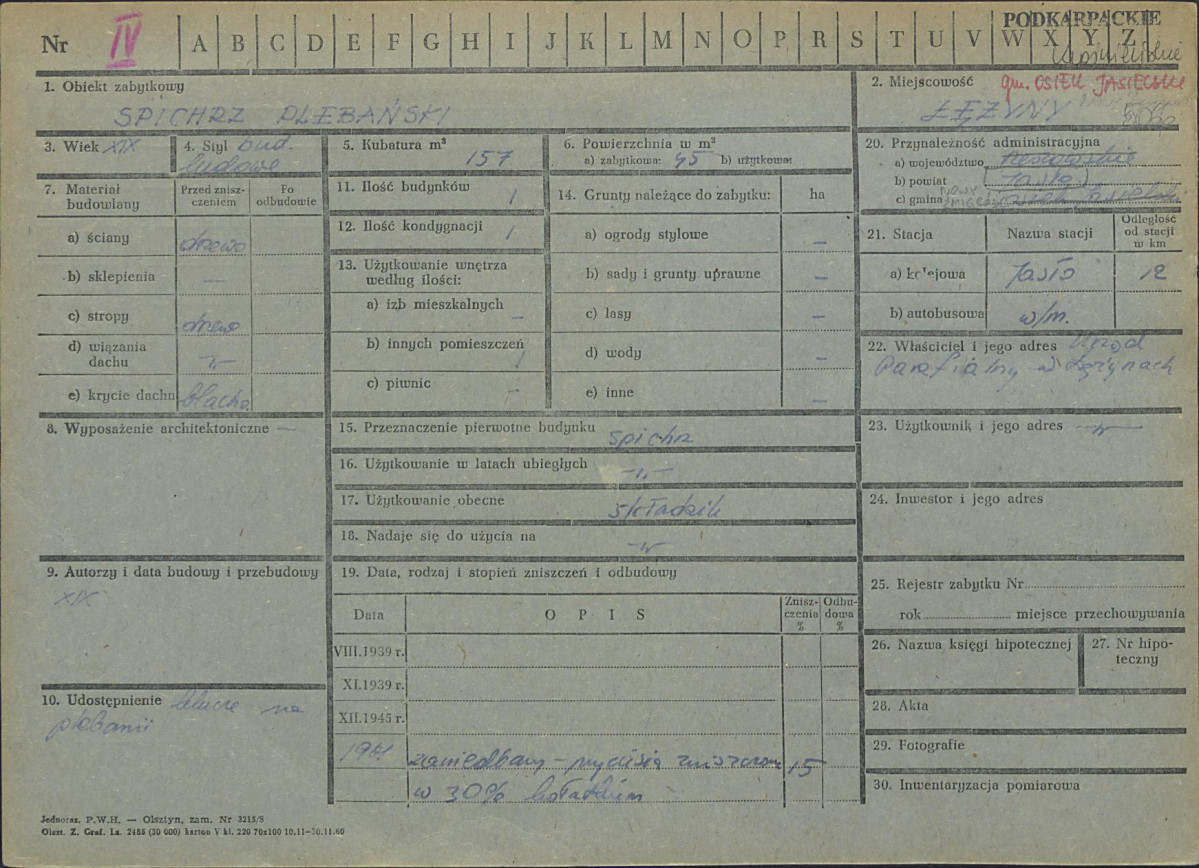 PODKARPACKIE
Nr IV A B C D E F G H I J K L M N O P R S T U V W X Y Z
1. Obiekt zabytkowy
SPICHRZ PLEBAŃSKI
2. Miejscowość gm. OSIEK JASIELSKI
ŁĘŻYNY
3. Wiek XIX
4. Styl bud. ludowe
5. Kubatura m³
157
6. Powierzchnia w m²
a) zabytkowa: 45 b) użytkowa:
20. Przynależność administracyjna
a) województwo rzeszowskie
b) powiat Jasło
c) gmina
7. Materiał budowlany
Przed zniszczeniem
Po odbudowie
a) ściany drewo
b) sklepienia —
c) stropy drewo
d) wiązania dachu -"-
e) krycie dachu blacha
11. Ilość budynków 1
12. Ilość kondygnacji 1
13. Użytkowanie wnętrza według ilości:
a) izb mieszkalnych —
b) innych pomieszczeń 1
c) piwnic —
14. Grunty należące do zabytku: ha
a) ogrody stylowe —
b) sady i grunty uprawne —
c) lasy —
d) wody —
e) inne —
21. Stacja
Nazwa stacji
Odległość od stacji w km
a) kolejowa Jasło 12
b) autobusowa w/m.
22. Właściciel i jego adres Urząd
Parafialny w Łężynach
8. Wyposażenie architektoniczne —
15. Przeznaczenie pierwotne budynku spichrz
16. Użytkowanie w latach ubiegłych -"-
17. Użytkowanie obecne składzik
18. Nadaje się do użycia na -"-
23. Użytkownik i jego adres -"-
24. Inwestor i jego adres
9. Autorzy i data budowy i przebudowy
XIX
19. Data, rodzaj i stopień zniszczeń i odbudowy
Data
O P I S
Zniszczenia %
Odbudowa %
VIII.1939 r.
XI.1939 r.
XII.1945 r.
1961 zaniedbany – 15
w 30%
25. Rejestr zabytku Nr
rok miejsce przechowywania
26. Nazwa księgi hipotecznej
27. Nr hipoteczny
10. Udostępnienie klucze na
plebanii
28. Akta
29. Fotografie
30. Inwentaryzacja pomiarowa
Jednoraz. P.W.H. — Olsztyn, zam. Nr 3215/S
Olszt. Z. Graf. Lz. 2485 (30 000) karton V kl. 220 70x100 10.11—30.11.60